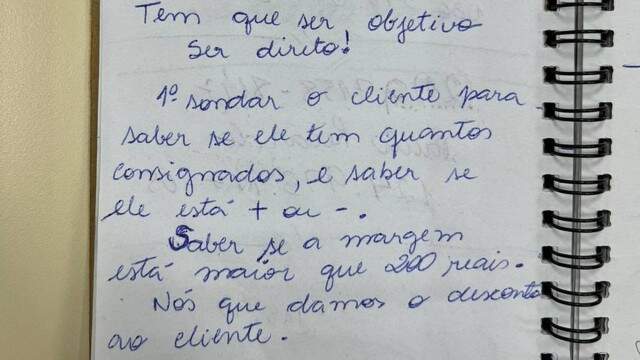 Tem que ser objetivo
Ser direto!
1º sondar o cliente para
saber se ele tem quantos
consignados, e saber se
ele está + ou -.
Saber se a margem
está maior que 200 reais.
Nós que damos o desconto
ao cliente.